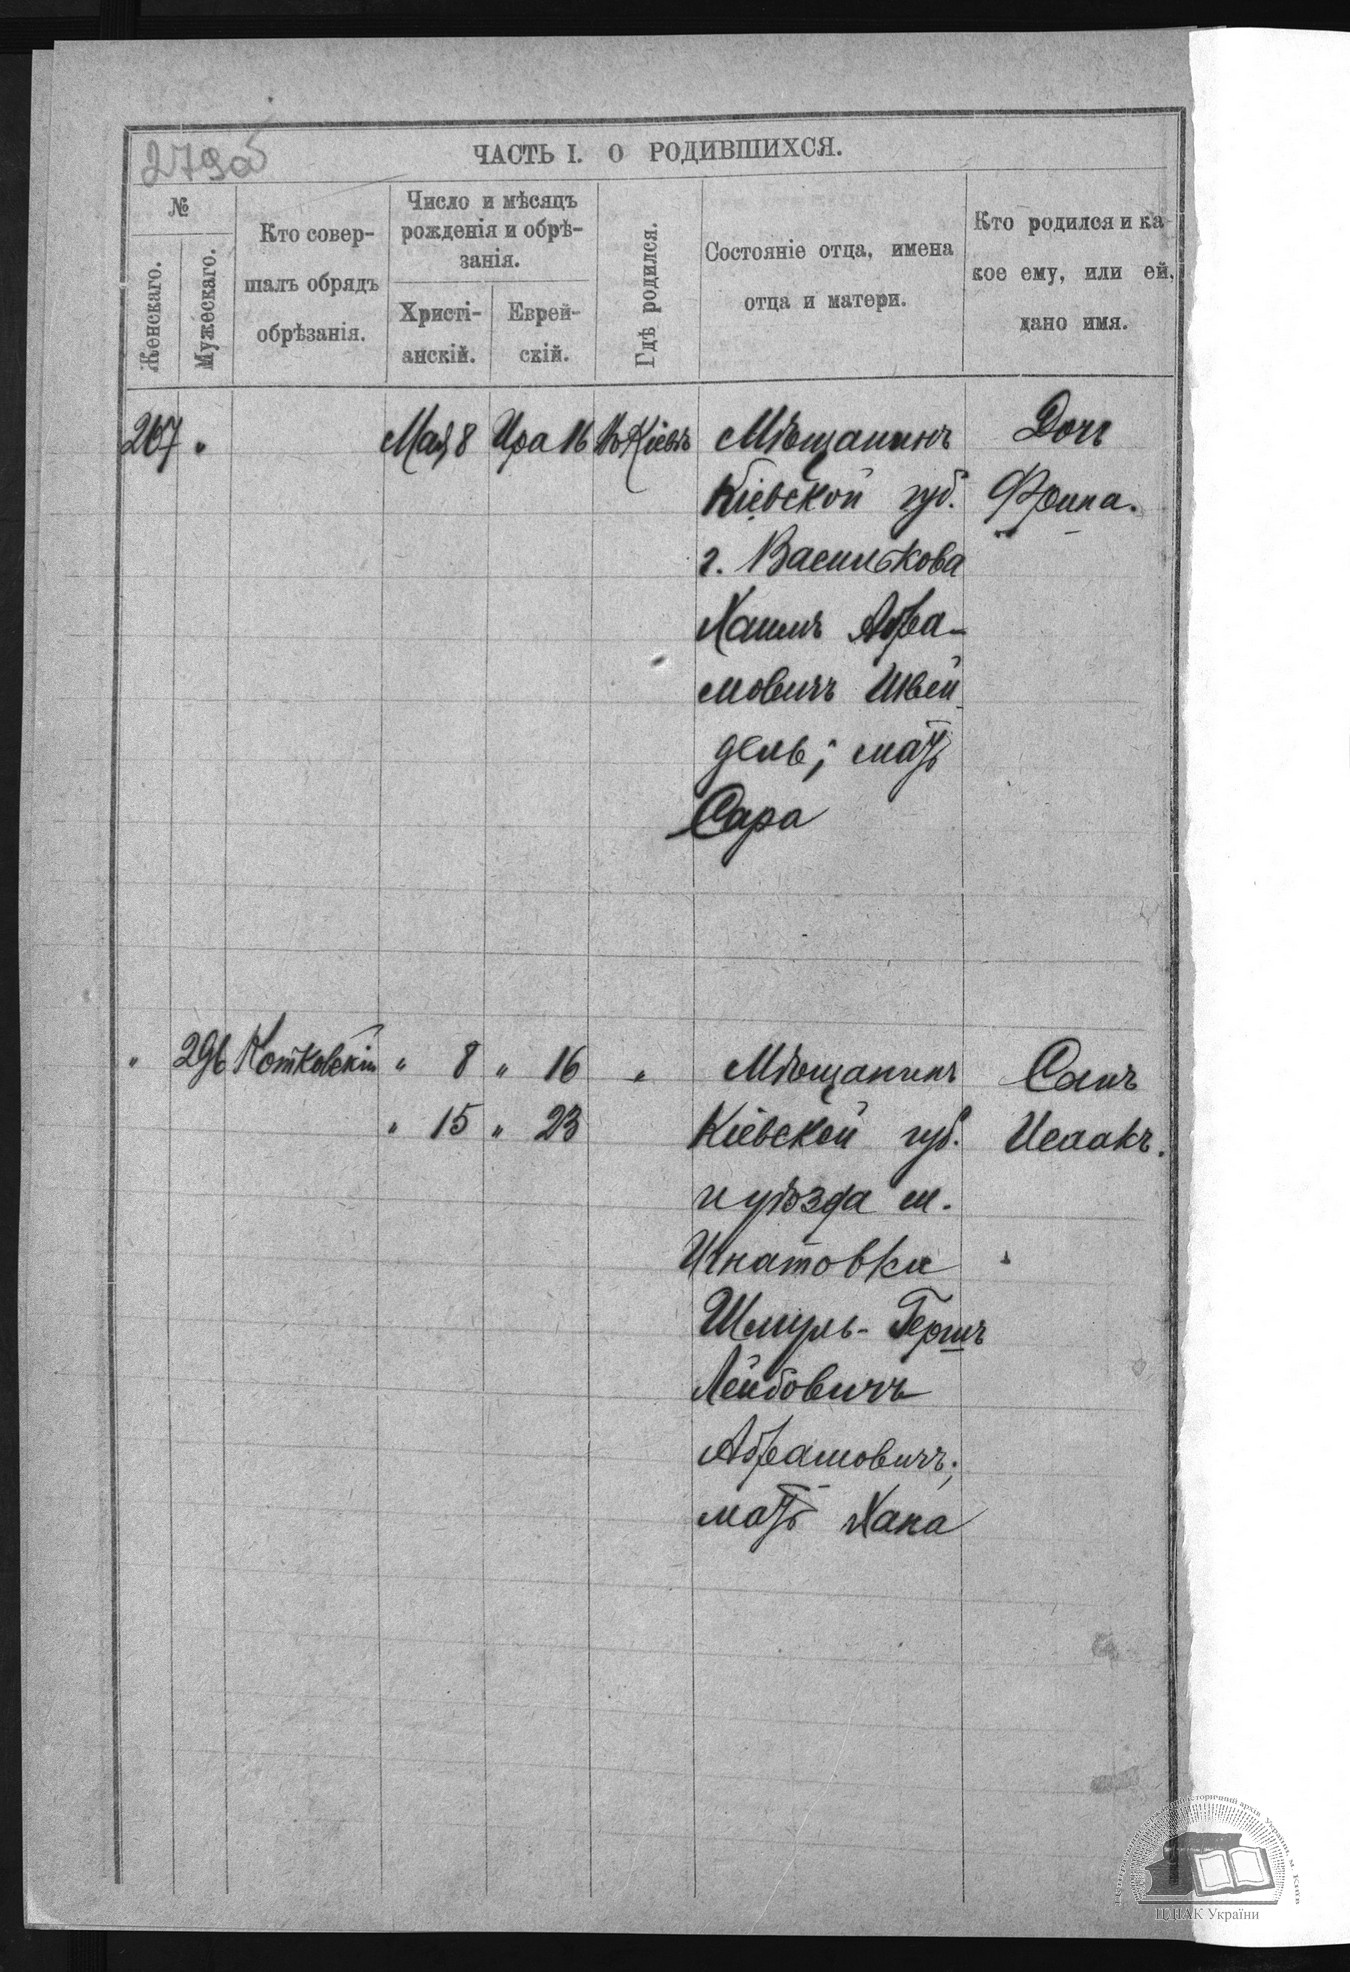 279об
ЧАСТЬ I. О РОДИВШИХСЯ.
№
Женскаго.
Мужескаго.
Кто совер-
шалъ обрядъ
обрѣзанія.
Число и мѣсяцъ
рожденія и обрѣ-
занія.
Христі-
анскій.
Еврей-
скій.
Гдѣ родился.
Состояніе отца, имена
отца и матери.
Кто родился и ка-
кое ему, или ей,
дано имя.
267 " Мая 8 Ира 16 Въ Кіевѣ Мѣщанинъ Дочь
Кіевской губ. Фрина.
г. Василькова
Хаимъ Абра-
мовичъ Швей-
дель; мать
Сара
" 296 Котковскій " 8 " 16 " Мѣщанинъ Сынъ
" 15 " 23 Кіевской губ. Исаакъ.
и уѣзда м.
Игнатовка
Шмуль-Гершъ
Лейбовичъ
Абрамовичъ;
мать Хана
ЦДІАК України